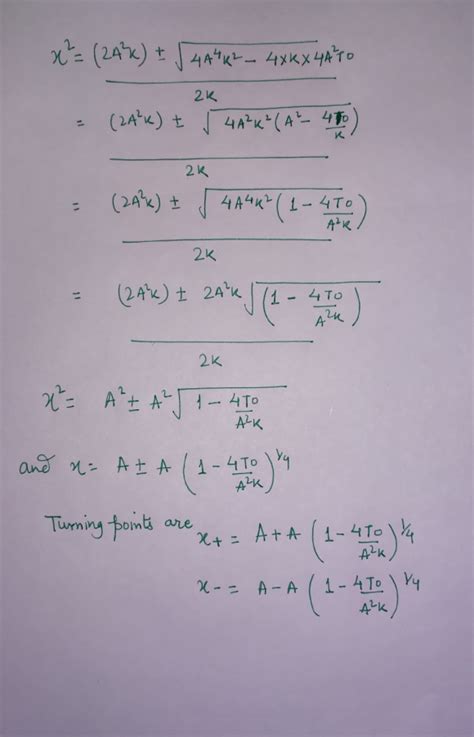 x² = (2A²K) ± √(4A⁴K² − 4×K×4A²T0) / 2K
= (2A²K) ± √(4A²K²(A² − 4T0/K)) / 2K
= (2A²K) ± √(4A⁴K²(1 − 4T0/A²K)) / 2K
= (2A²K) ± 2A²K √((1 − 4T0/A²K)) / 2K
x² = A² ± A² √(1 − 4T0/A²K)
and x = A ± A (1 − 4T0/A²K)^1/4
Turning points are x+ = A+A (1 − 4T0/A²K)^1/4
x− = A−A (1 − 4T0/A²K)^1/4